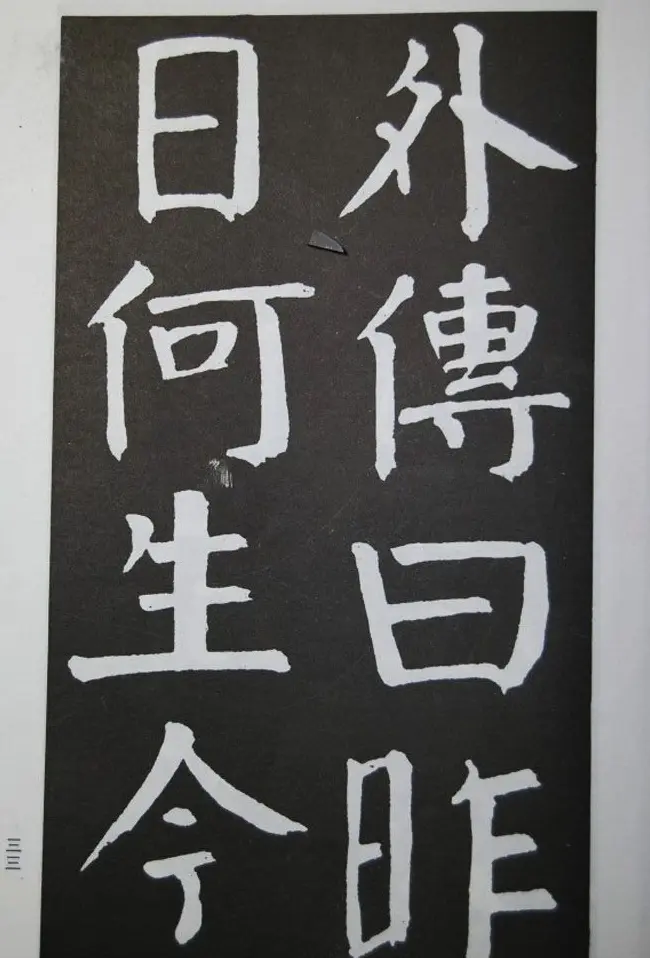 外傳曰昨
日何生今
三三